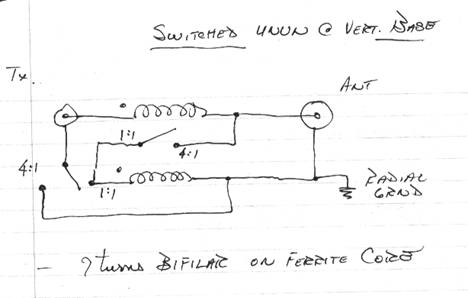 SWITCHED UNUN @ VERT. BASE
Tx.
ANT
1:1
4:1
4:1
1:1
RADIAL
GRND
- 7 turns BIFILAR ON FERRITE CORE